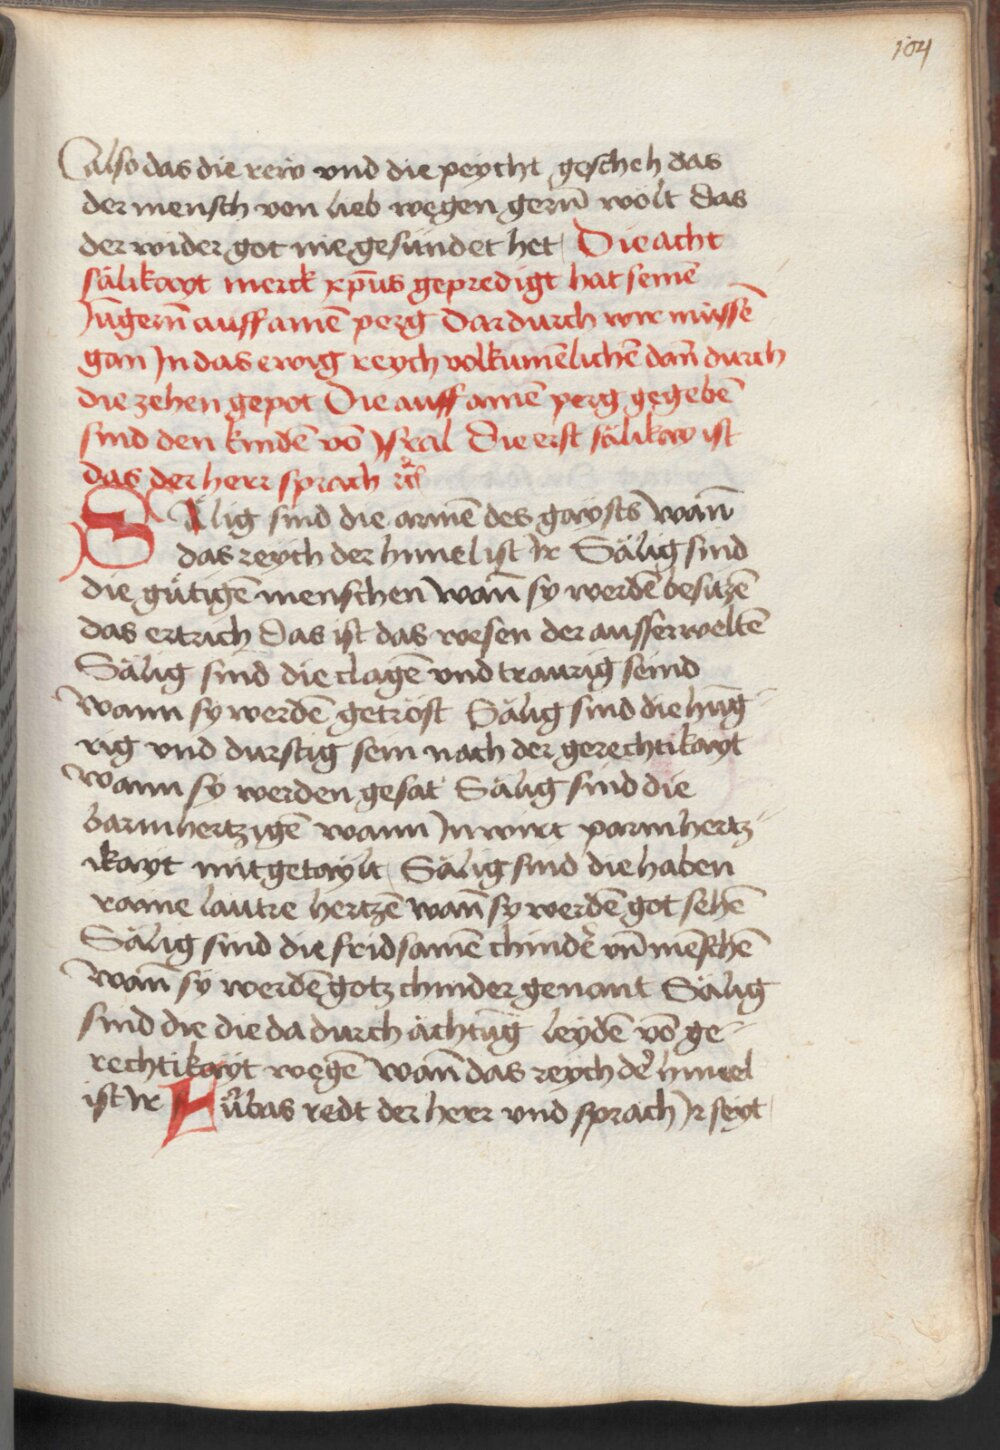 104
also das die rew vnd die peycht gescheh das
der mensch von lieb wegen gern̄ wolt das
der wider got nie gesündet het Die acht
sälikayt merck xp̄us gepredigt hat seinē
Jūgern̄ auff ainē perg Dardurch wir müssē
gan Jn das ewig reych volkumēlichē dan̄ durch
die zehen gepot Die auff ainē perg gegebē
sind den kindē vō Jsräl Die erst sälikay ist
das der herr sprach
Sälig sind die armē des gaysts wan̄
das reych der himel ist Jr Sälig sind
die gütigē menschen wan̄ sy werdē besitzē
das ertrich Das ist das wesen der ausserweltē
Sälig sind die clagē vnd traurig seind
wann sy werdē getröst Sälig sind die hūg-
rig vnd durstig sein nach der gerechtikayt
wann sy werden gesat Sälig sind die
barmhertzigē wann Jn wirt parmhertz-
ikayt mitgetaylt Sälig sind die haben
raine lautre hertzē wan̄ sy werdē got sehē
Sälig sind die fridsamē chindēr vn̄ mēschē
wan̄ sy werdē gotz chinder genant Sälig
sind die die da durch ächtūg leydē vō ge-
rechtikayt wegē wan̄ das reych der himel
ist Jr Fürbas redt der herr vnd sprach Jr seyt